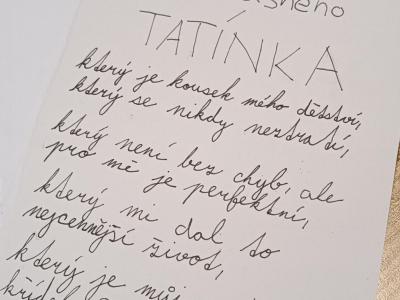 TATÍNKA
který je kousek mého dětství,
který se nikdy neztratí,
který není bez chyb, ale
pro mě je perfektní,
který mi dal to
nejcennější život,
který je můj